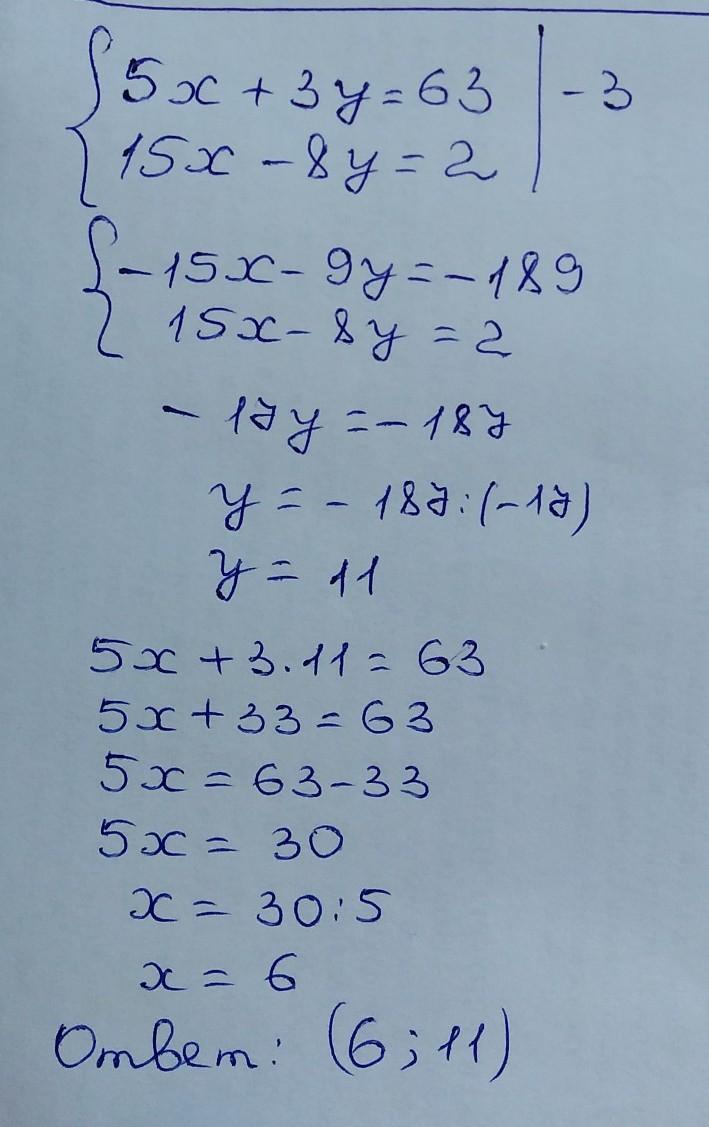 {5x + 3y = 63 | - 3
15x - 8y = 2
{-15x - 9y = -189
15x - 8y = 2
- 17y = - 187
y = - 187 : (-17)
y = 11
5x + 3 . 11 = 63
5x + 33 = 63
5x = 63 - 33
5x = 30
x = 30 : 5
x = 6
Ответ: (6 ; 11)